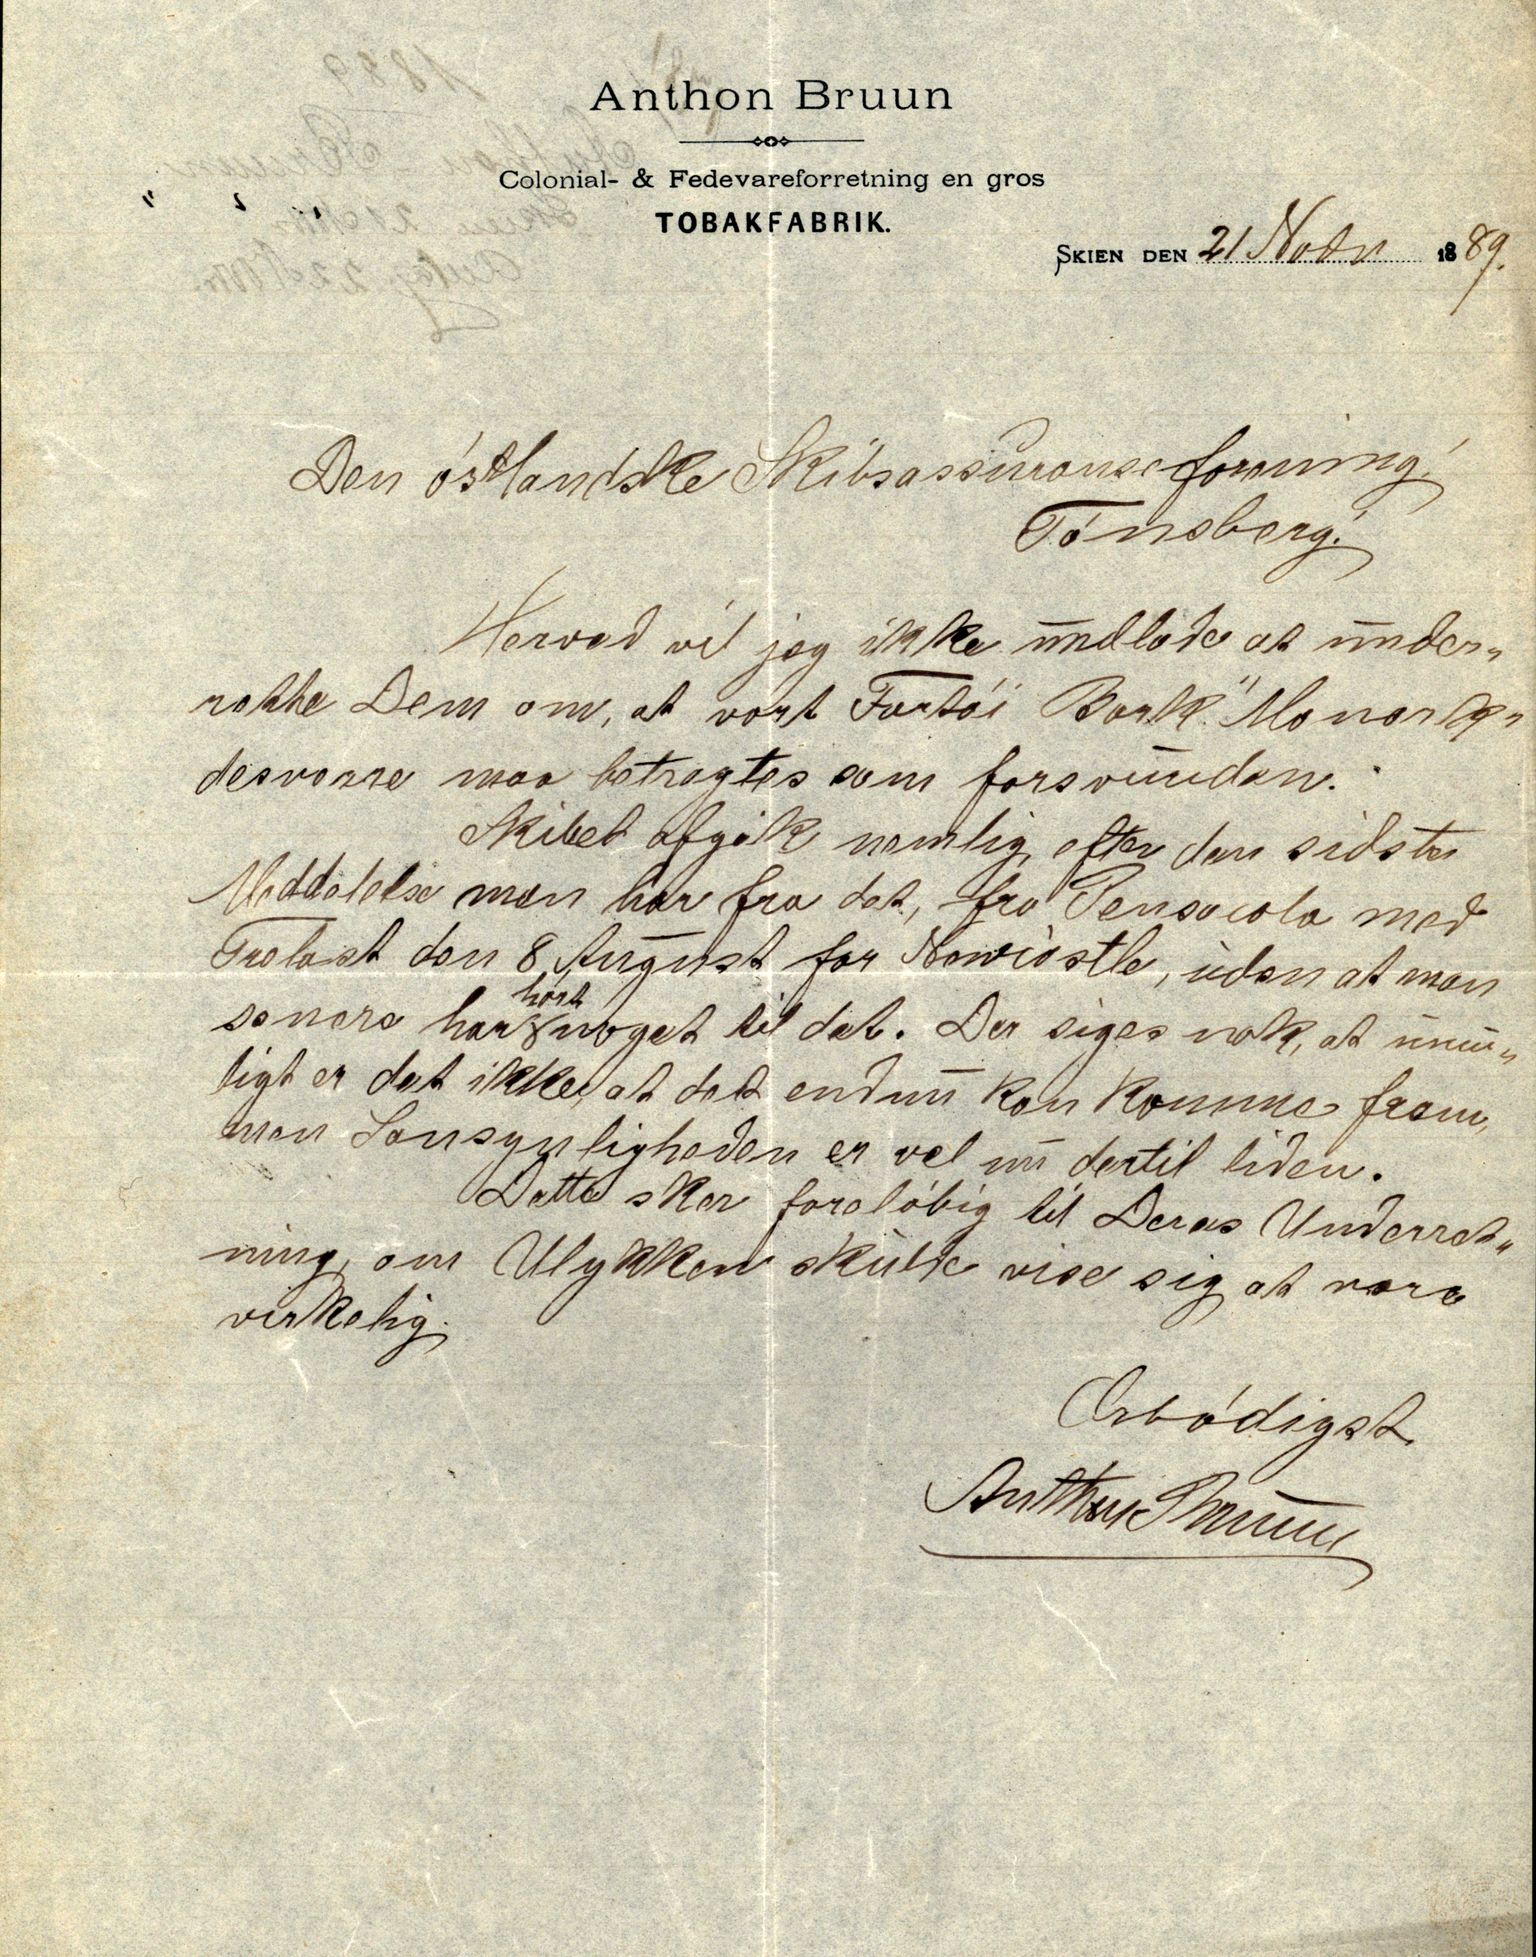 Anthon Bruun
Colonial- & Fedevareforretning en gros
TOBAKFABRIK.
SKIEN DEN 21 Novbr 1889.
Den østlandske Skibsassuranceforening!
Tønsberg!
Herved vil jeg ikke undlade at under„
rette Dem om, at vort Fartøi Bark "Monark„
desværre maa betragtes som forsvunden.
Skibet afgik nemlig, efter den sidste
Meddelelse man har fra det, fra Pensacola med
Trælast den 8 August for Newcastle, uden at man
senere har hørt noget til det. Der siges nok, at umu„
ligt er det ikke, at det endnu kan komme frem,
men Sansynligheden er vel nu dertil liden.
Dette sker foreløbig til Deres Underret„
ning, om Ulykken skulde vise sig at være
virkelig.
Ærbødigst
Anthon Bruun